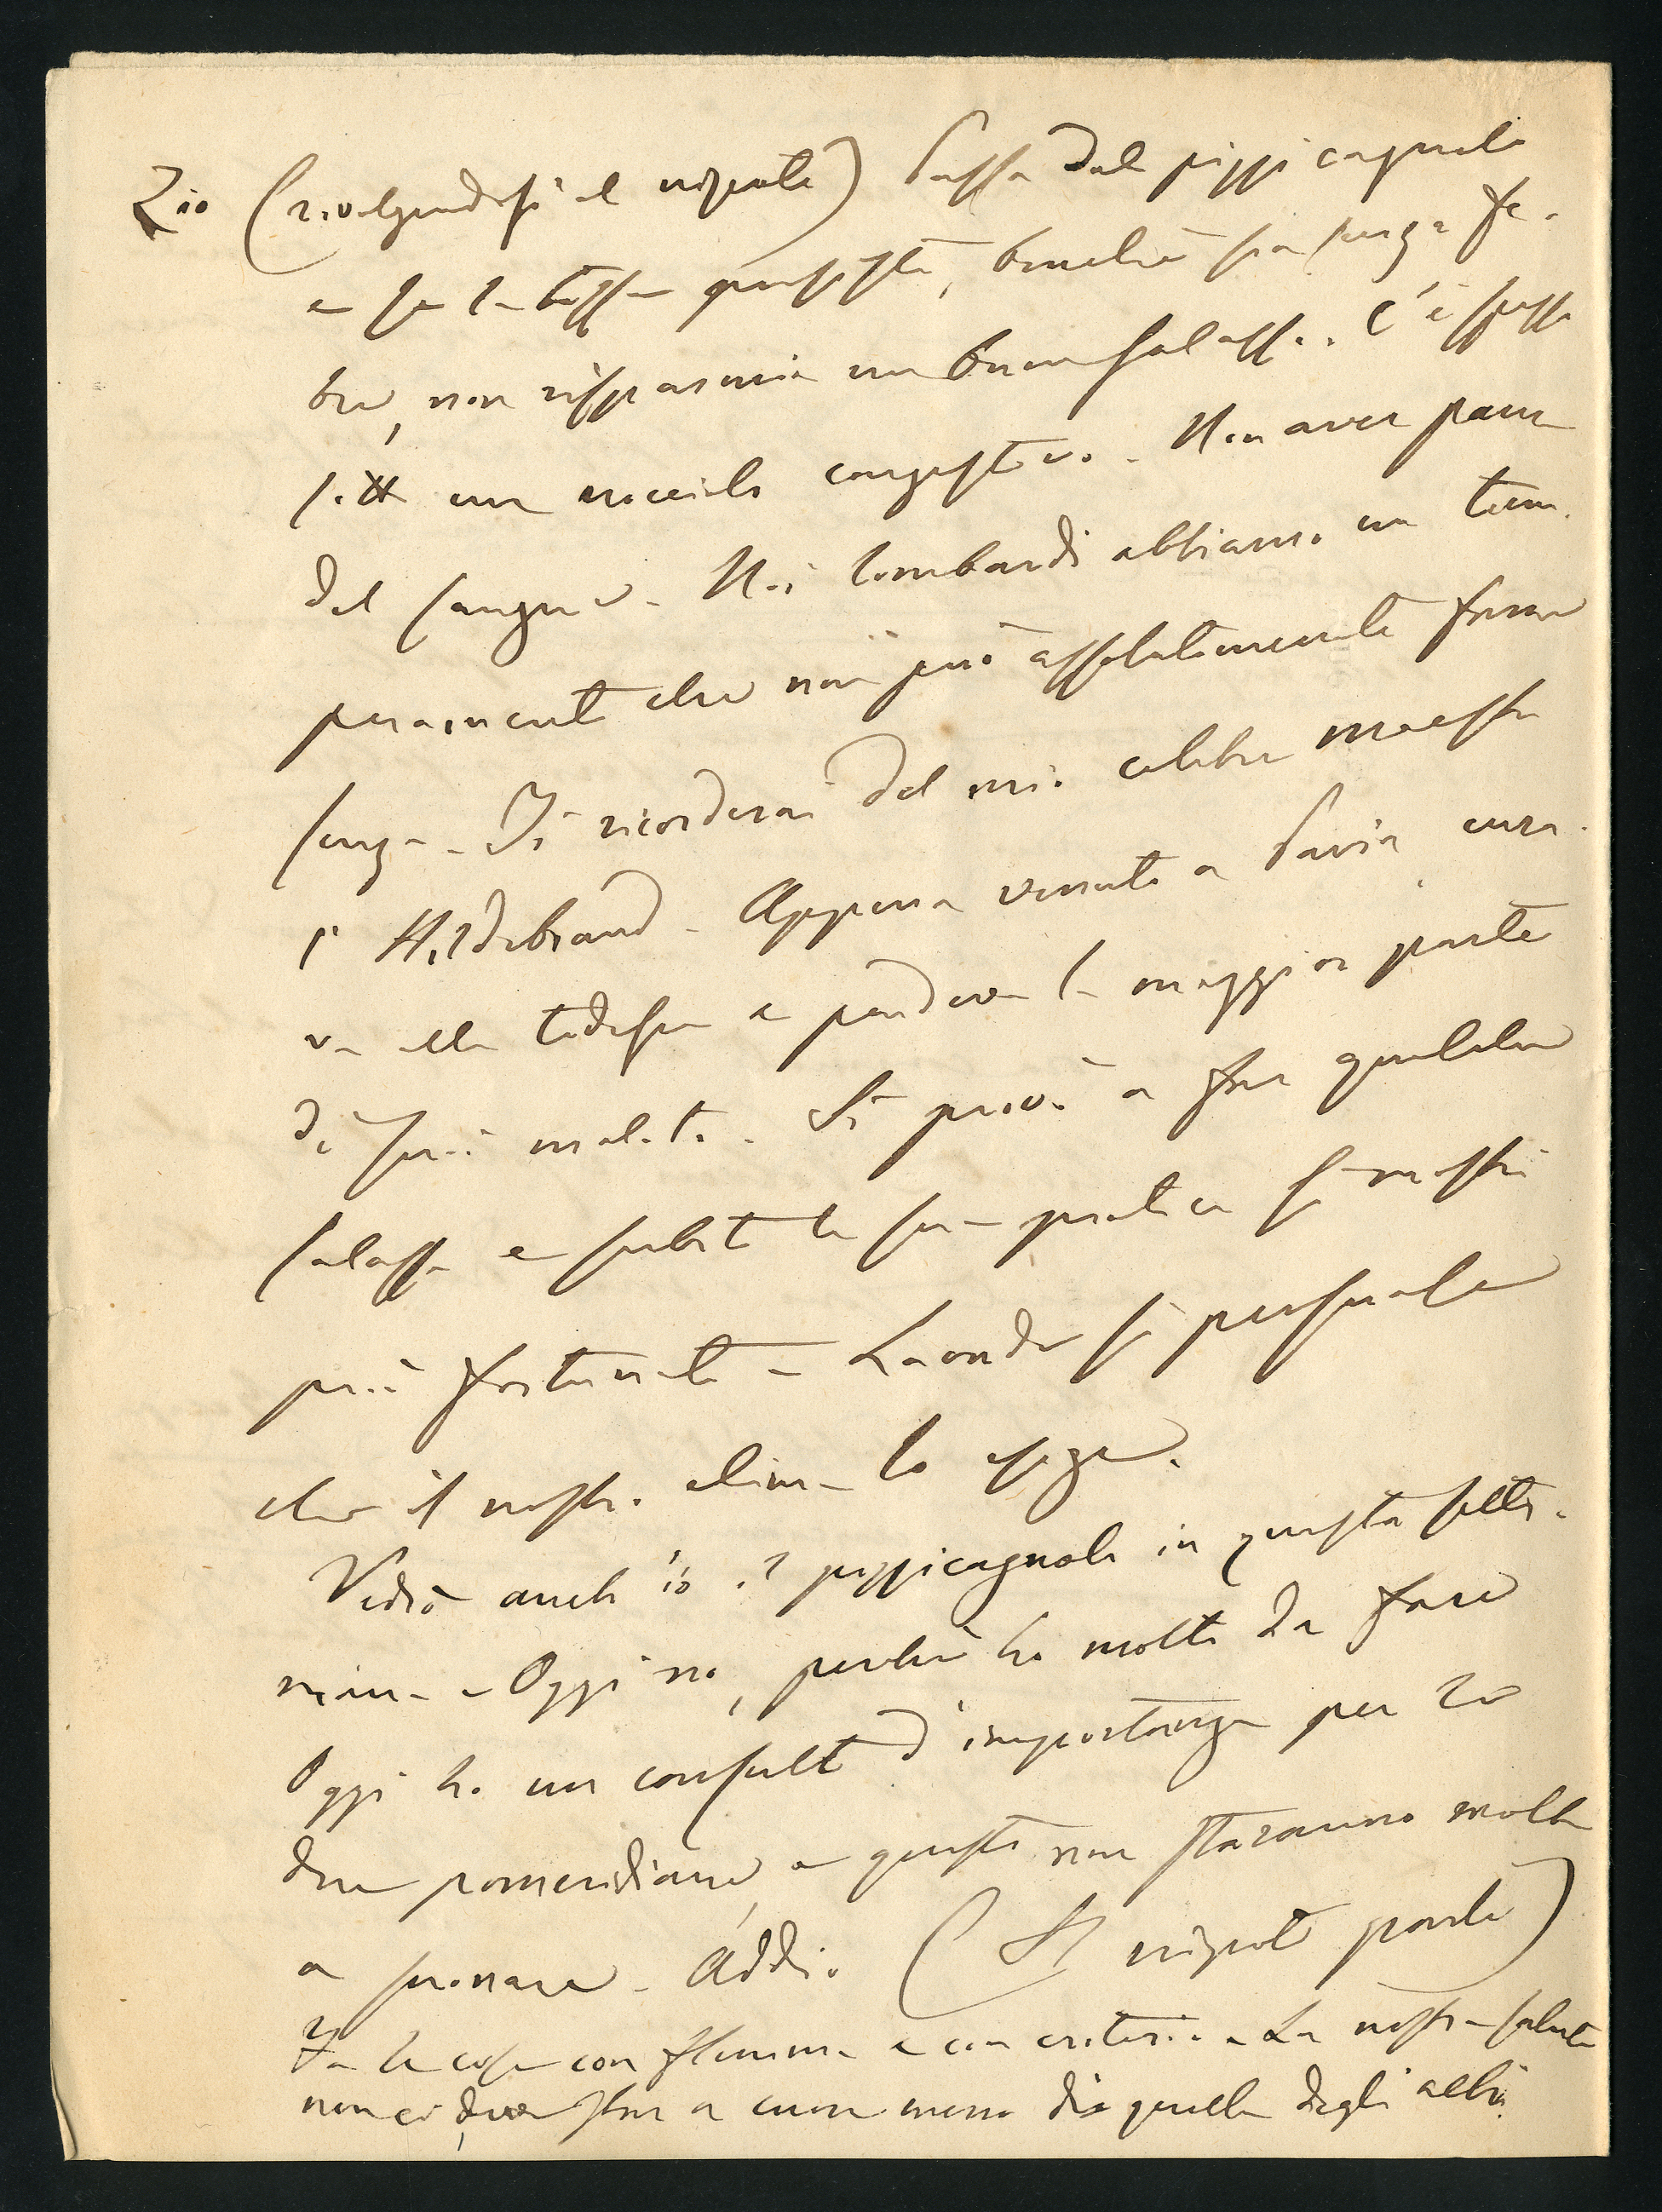 Zio (rivolgendosi al nipote) Passa dal pizzicagnolo
e se la tosse persiste, benchè sia senza feb-
bre, non risparmia un buon salasso. C'è spesso
sotto un nocciolo congestivo. Non aver paura
del sangue. Noi lombardi abbiamo un tem-
peramento che non può assolutamente farne
senza. Ti ricorderai del mio celebre maestro
l'Hildebrand. Appena venuto a Pavia, cura-
va alla tedesca e perdeva la maggior parte
di suoi malati. Si provò a far qualche
salasso e subito la sua pratica si mostrò
più fortunata. Laonde si persuase
che il nostro clima lo esige.
Vedrò anch'io il pizzicagnolo in questa setti-
mana. Oggi no, perchè ho molto da fare
Oggi ho un consulto d'importanza per le
due pomeridiane, e queste non staranno molto
a suonare. Addio (Il nipote parte)
Fa le cose con flemma e con criterio. La nostra salute
non ci deve star a cuore meno di quella degli altri.